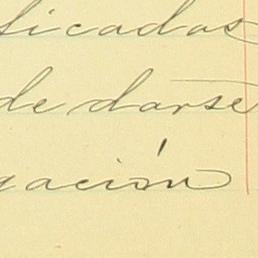 ficados
de darse
gación